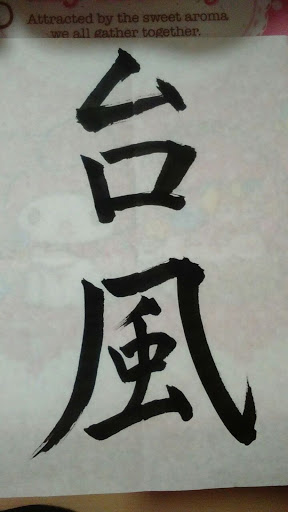 Attracted by the sweet aroma
we all gather together.
台風